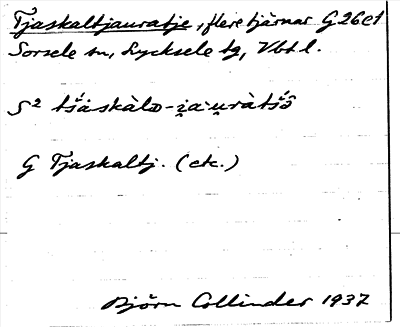 Tjaskaltjauratje, flere tjärnar G 26 c1
Sorsele sn, Lycksele tg, Vbtl.
S² tšáskàlᴅ-i̯au̯ràtšɔ̂
G Tjaskaltj. (etc.)
Björn Collinder 1937